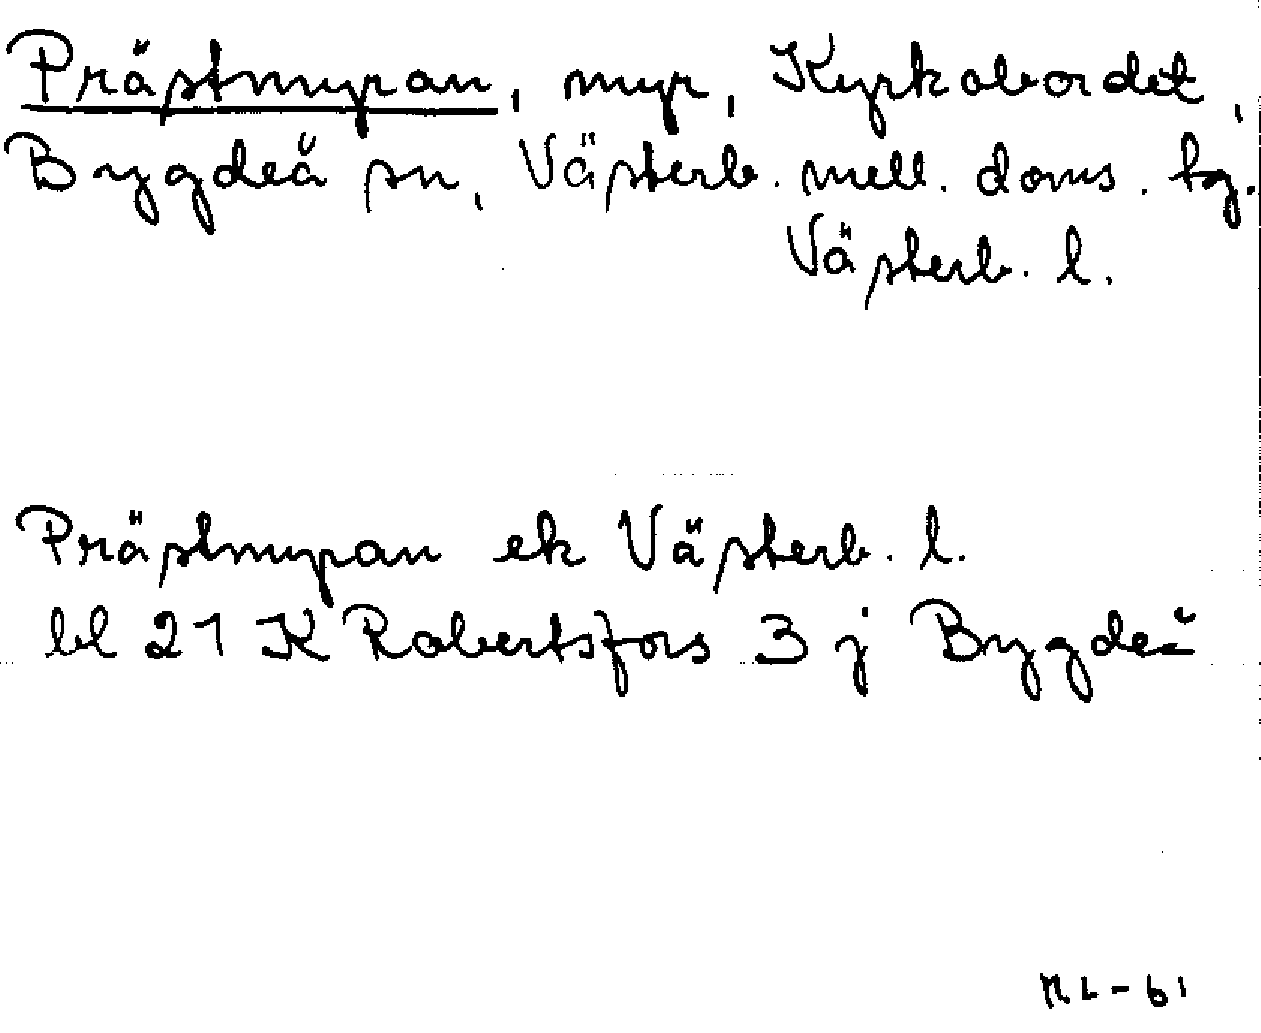 Prästmyran, myr, Kyrkobordet,
Bygdeå sn, Västerb. mell. doms. tg.
Västerb. l.
Prästmyran ek Västerb. l.
bl 21 K Robertsfors 3 j Bygdeå
ML-61